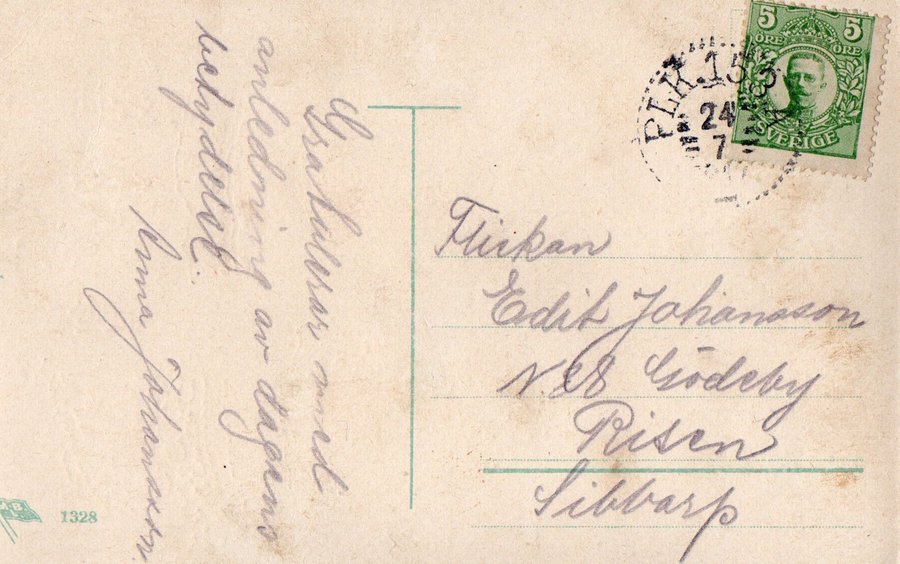 Gratulerar med
anledning av dagens
betydelse.
Anna Johansson
5 5
ÖRE ÖRE
SVERIGE
PLK. 153
24
7
Flickan
Edit Johansson
N. 28 Gödeby
Risen
Sibbarp
1328